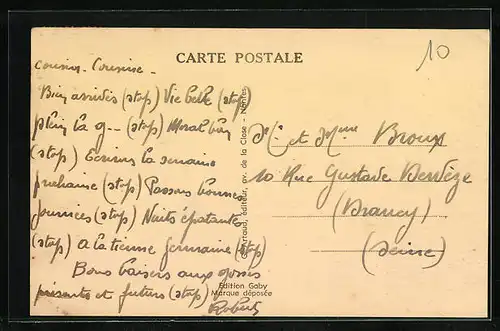 CARTE POSTALE
10
Cousin - Cousine -
Bien arrivés (stop) Vie belle (stop)
plein la g-- (stop) Moral bon
(stop) Ecrirons la semaine
prochaine (stop) Passons bonnes
journées (stop) Nuits épatantes
(stop) A la tienne Germaine (stop)
Bons baisers aux gosses
présents et futurs (stop)
Robert
Artaud, éditeur, av. de la Close - Nantes
Edition Gaby
Marque déposée
Mr. et Mme Broux
10 Rue Gustave
(Drancy)
(Seine)